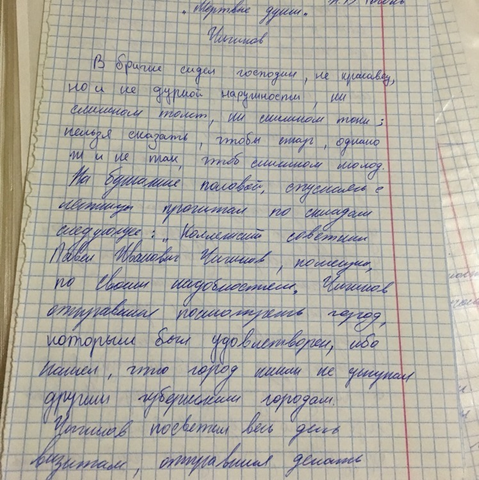 „Мертвые души".
Чичиков
В бричке сидел господин, не красавец,
но и не дурной наружности, ни
слишком толст, ни слишком тонк;
нельзя сказать, чтобы стар, однако
ж и не так, чтоб слишком молод.
На бумажке половой, спускаясь с
лестницы прочитал по складам
следующие: „Коллежский советник
Павел Иванович Чичиков, помещик,
по своим надобностям. Чичиков
отправился посмотреть город,
которым был удовлетворен, ибо
нашел, что город никак не уступал
другим губернским городам.
Чичиков посветил весь день
визитам, отправился делать